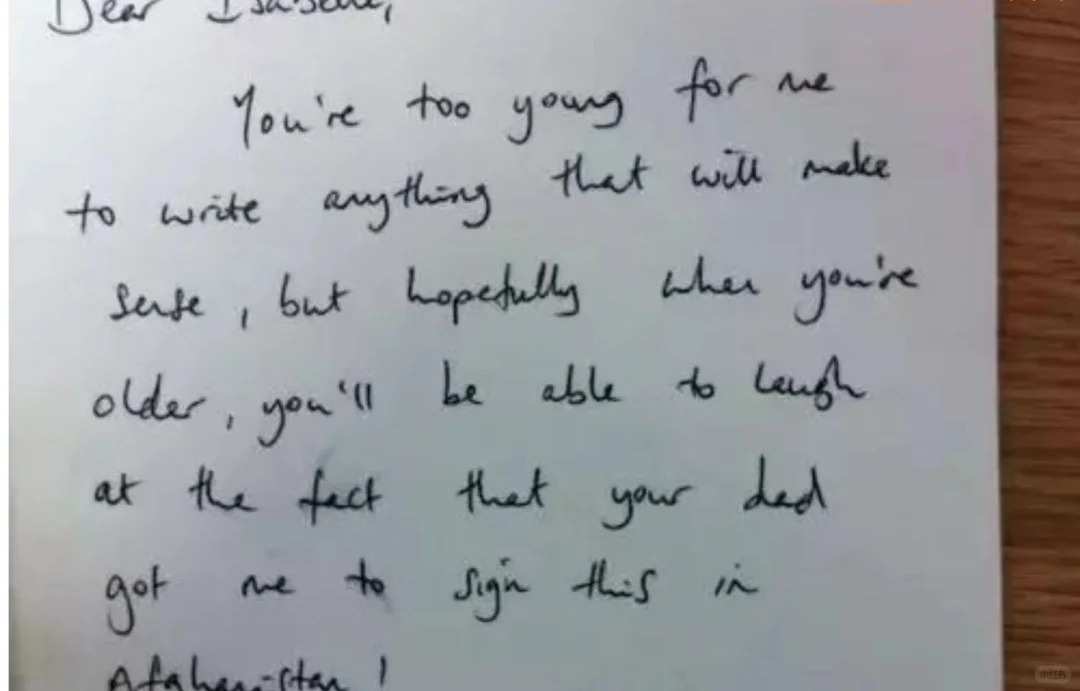 Dear Isabelle,
You're too young for me
to write anything that will make
sense, but hopefully when you're
older, you'll be able to laugh
at the fact that your dad
got me to sign this in
Afghanistan!